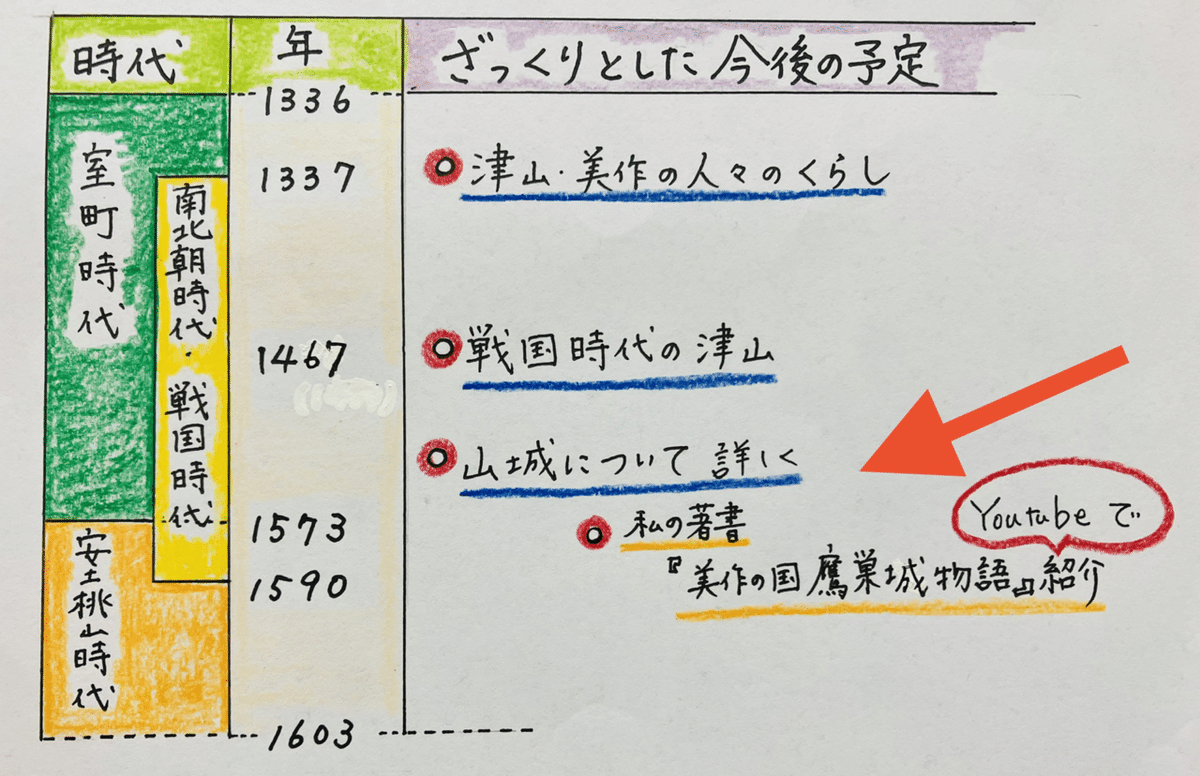 時代
年
ざっくりとした今後の予定
1336
室町時代
1337
津山・美作の人々のくらし
南北朝時代・戦国時代
1467
戦国時代の津山
山城について 詳しく
1573
私の著書
Youtubeで
1590
『美作の国 鷹巣城物語』紹介
安土桃山時代
1603